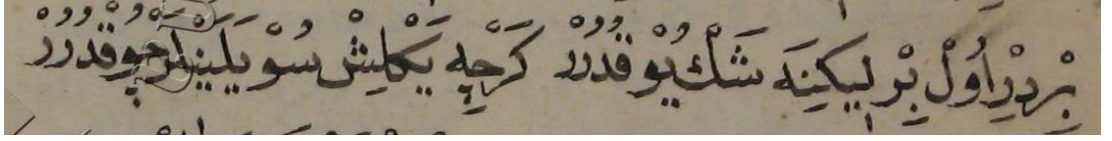 بِرْدِرْ اُولْ بِرْلِيكِينَه شَكْ يُوقْدُرُرْ كَرْچِه يَكْلِشْ سُويْلَيَنْلَرْ چُوقْدُرُرْ